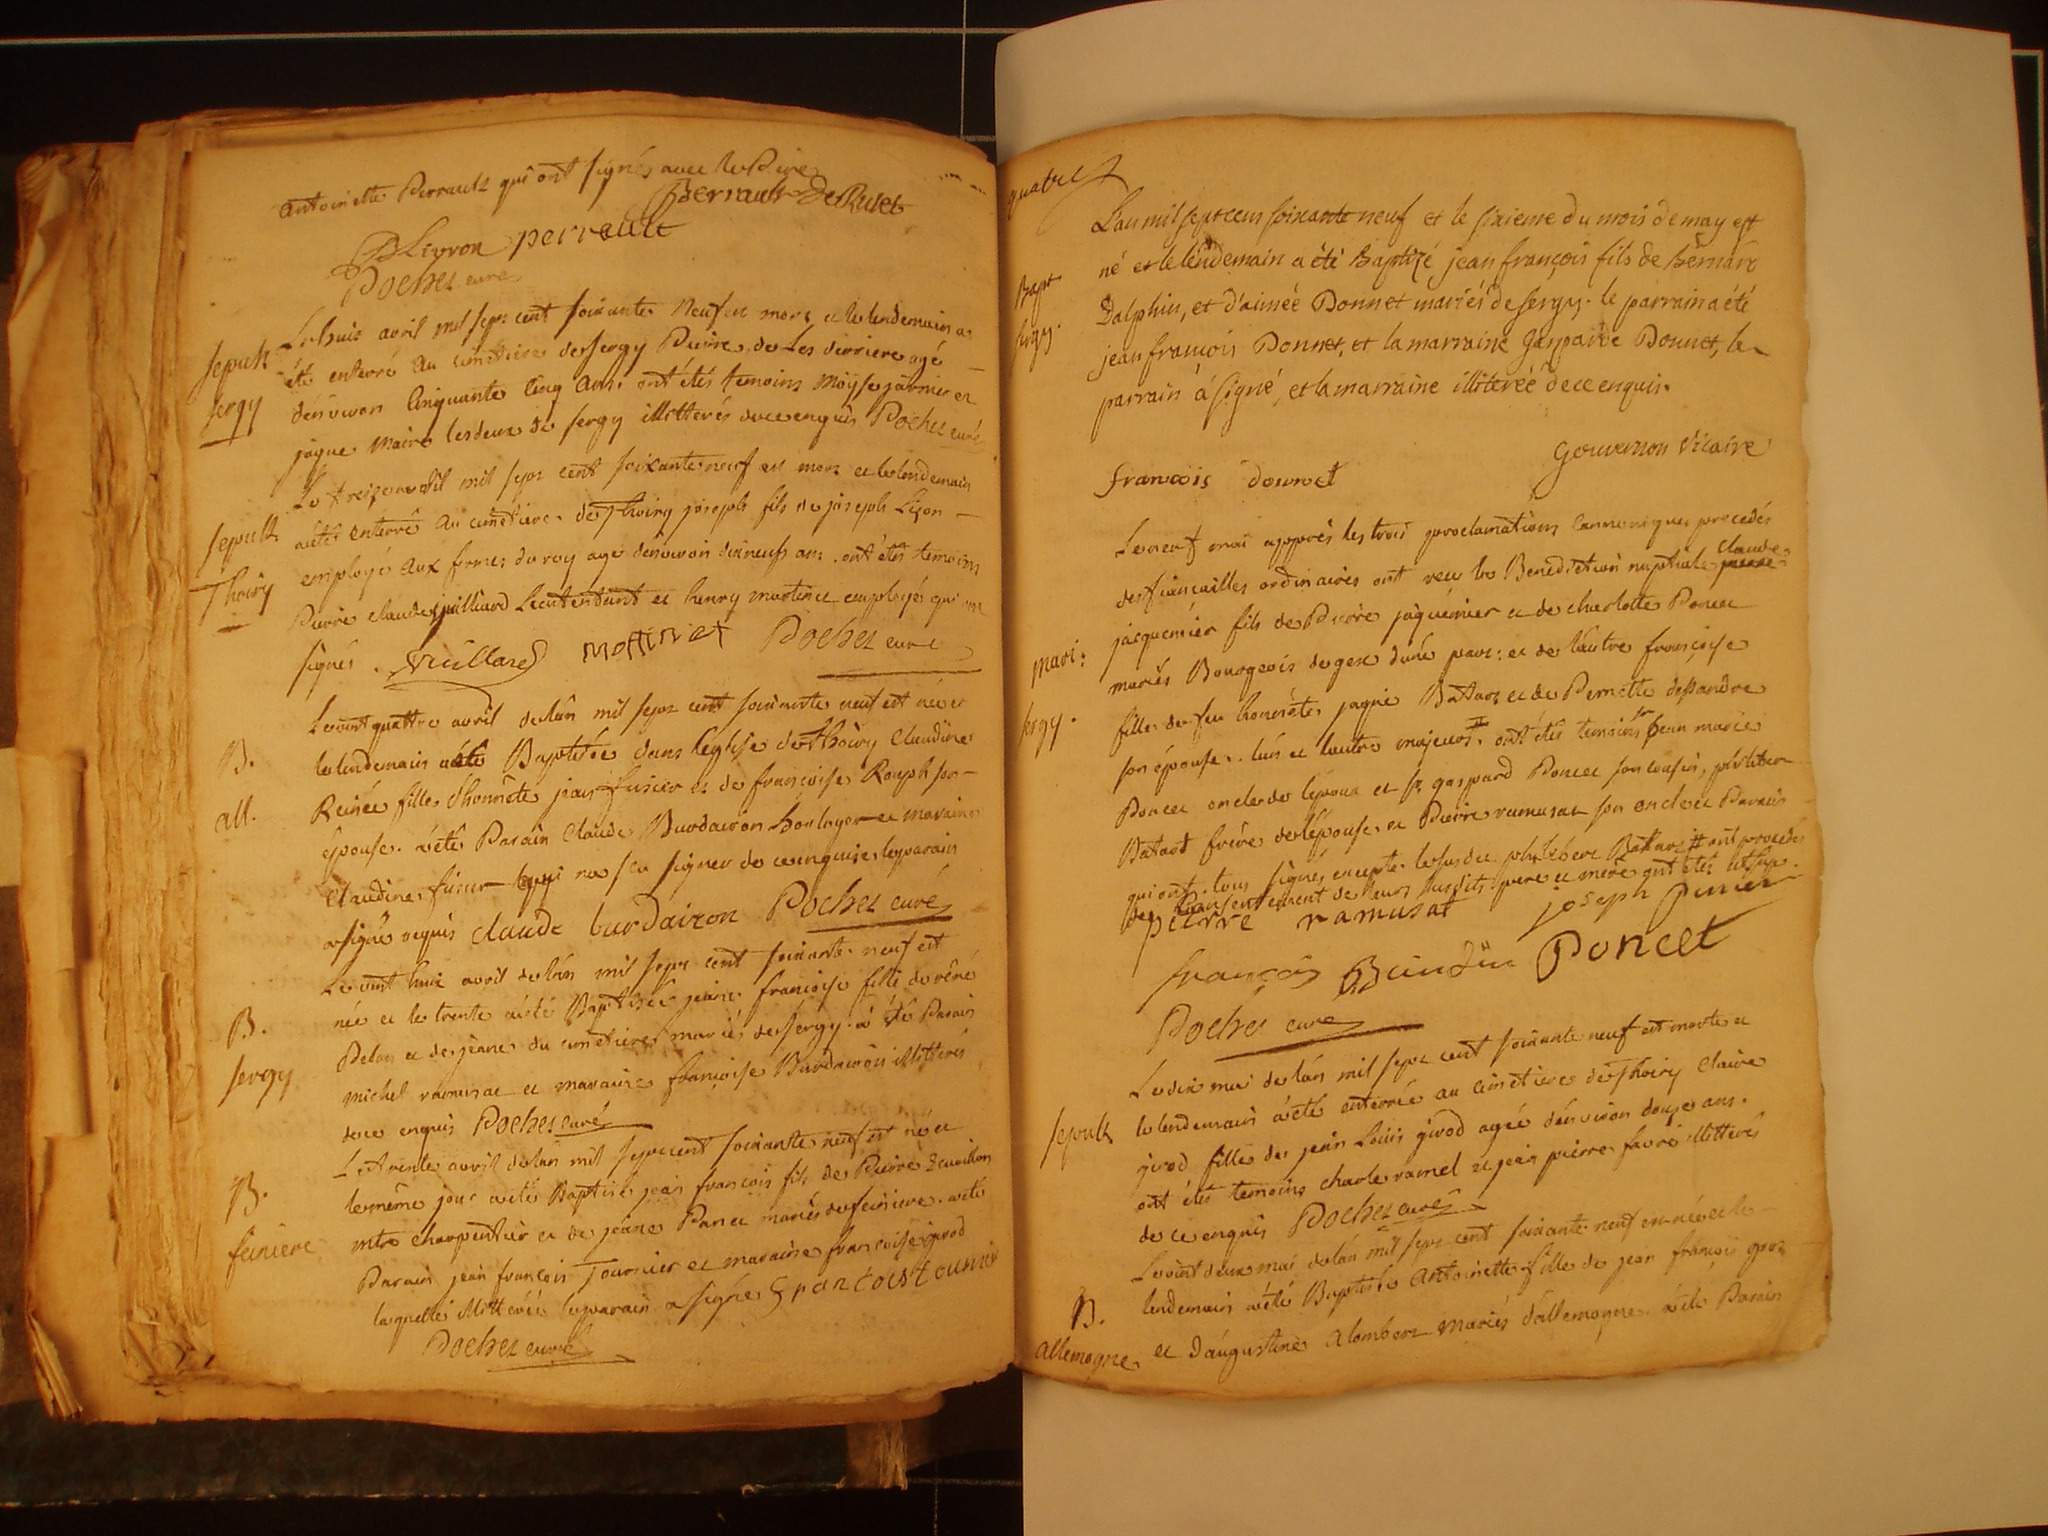 antoinette Perrault qui ont signés avec le Pere
Perrault De Rutet
Livron perrault
Pochet curé
Sepult. Sergy
Le huit avril mil sept cent soixante neuf est mort et le lendemain a
été enterré au cimetiere de Sergy Pierre de Les derriere agé
denviron cinquante cinq ans. ont étés temoins Moÿse garnier et
jaque Maire les deux de Sergy illitterés de ce enquis Pochet curé
Sepult. Thoiry
Le treize avril mil sept cent soixante neuf est mort et le lendemain
a été enterré au cimetiere de Thoiry joseph fils de joseph Liçon
employé aux fermes du roy agé denviron dixneuf ans. ont étés temoins
Pierre claude juilliard Lieutendant et henry martinet employés qui ont
signés. Vuillard mottinet Pochet curé
B. all.
Le vint quattre avril de lan mil sept cent soixante neuf est née et
le lendemain a été Baptisée dans l'église de Thoiry Claudine
Reinée fille d'honnête jean fusier et de françoise Rouph son
épouse. a été Parain Claude Burdairon horloger et maraine
Claudine fusier qui na scu signer de ce enquise le parain
a signé requis claude burdairon Pochet curé
B. Sergy
Le vint huit avril de lan mil sept cent soixante neuf est
née et le trente a été Baptisée jeane francoise fille de réné
Delas et de jeane du cimetiere mariés de Sergy. a été Parain
michel ramusat et maraine françoise Burdairon illitterés
de ce enquis Pochet curé
B. feniere
Le trente avril de lan mil sept cent soixante neuf est né et
le même jour a été Baptisé jean francois fils de Pierre Ecuvillon
mtre charpentier et de jeane Panet mariés de feniere. a été
Parain jean françois Tournier et maraine francoise girod
laquelle illitterée le parain a signé francois tournier
Pochet curé
quatre
Bapt Sergy.
L'an mil sept cens soixante neuf et le sixieme du mois de may est
né et le lendemain a été Baptizé jean françois fils de Bernard
Dalphin, et d'aimée Donnet mariés de sergy. le parrain a été
jean françois Donnet, et la marraine Gasparde Donnet, le
parrain a signé, et la marraine illiterée de ce enquis.
Gouvernon Vicaire
francois dounet
mari: Sergy.
Le neuf mai apprés les trois proclamations cannoniques precedés
des fiancailles ordinaires ont recu la Benediction nuptiale claude
jacquemier fils de Pierre jaquemier et de charlotte Poncet
mariés Bourgeois de gex dune part: et de lautre françoise
fille de feu honnête jaque Batard et de Pernette dessandre
son épouse. lun et lautre majeurs #. ont étés temoins sr jean marie
Poncet oncle de lépoux et sr. gaspard Poncet son cousin, philibert
Batard frère de lépouse et Pierre ramusat son oncle et Parain
qui ont tous signés excepté le susdit philibert Batard # ont procedés
du consentement de leurs susdits pere et mère
pierre ramusat joseph
françois Poncet
Pochet curé
Sepult
Le dix mai de lan mil sept cent soixante neuf est morte et
le lendemain a été enterrée au cimetiere de Thoiry Claire
girod fille de jean Louis girod agée denviron douze ans.
ont étés temoins charle ramel et jean pierre favre illitterés
de ce enquis Pochet curé
B. Allemogne
Le vint deux mai de lan mil sept cent soixante neuf est née et le
lendemain a été Baptisée Antoinette fille de jean françois
et d'augustine Alombert mariés d'allemogne. a été Parain